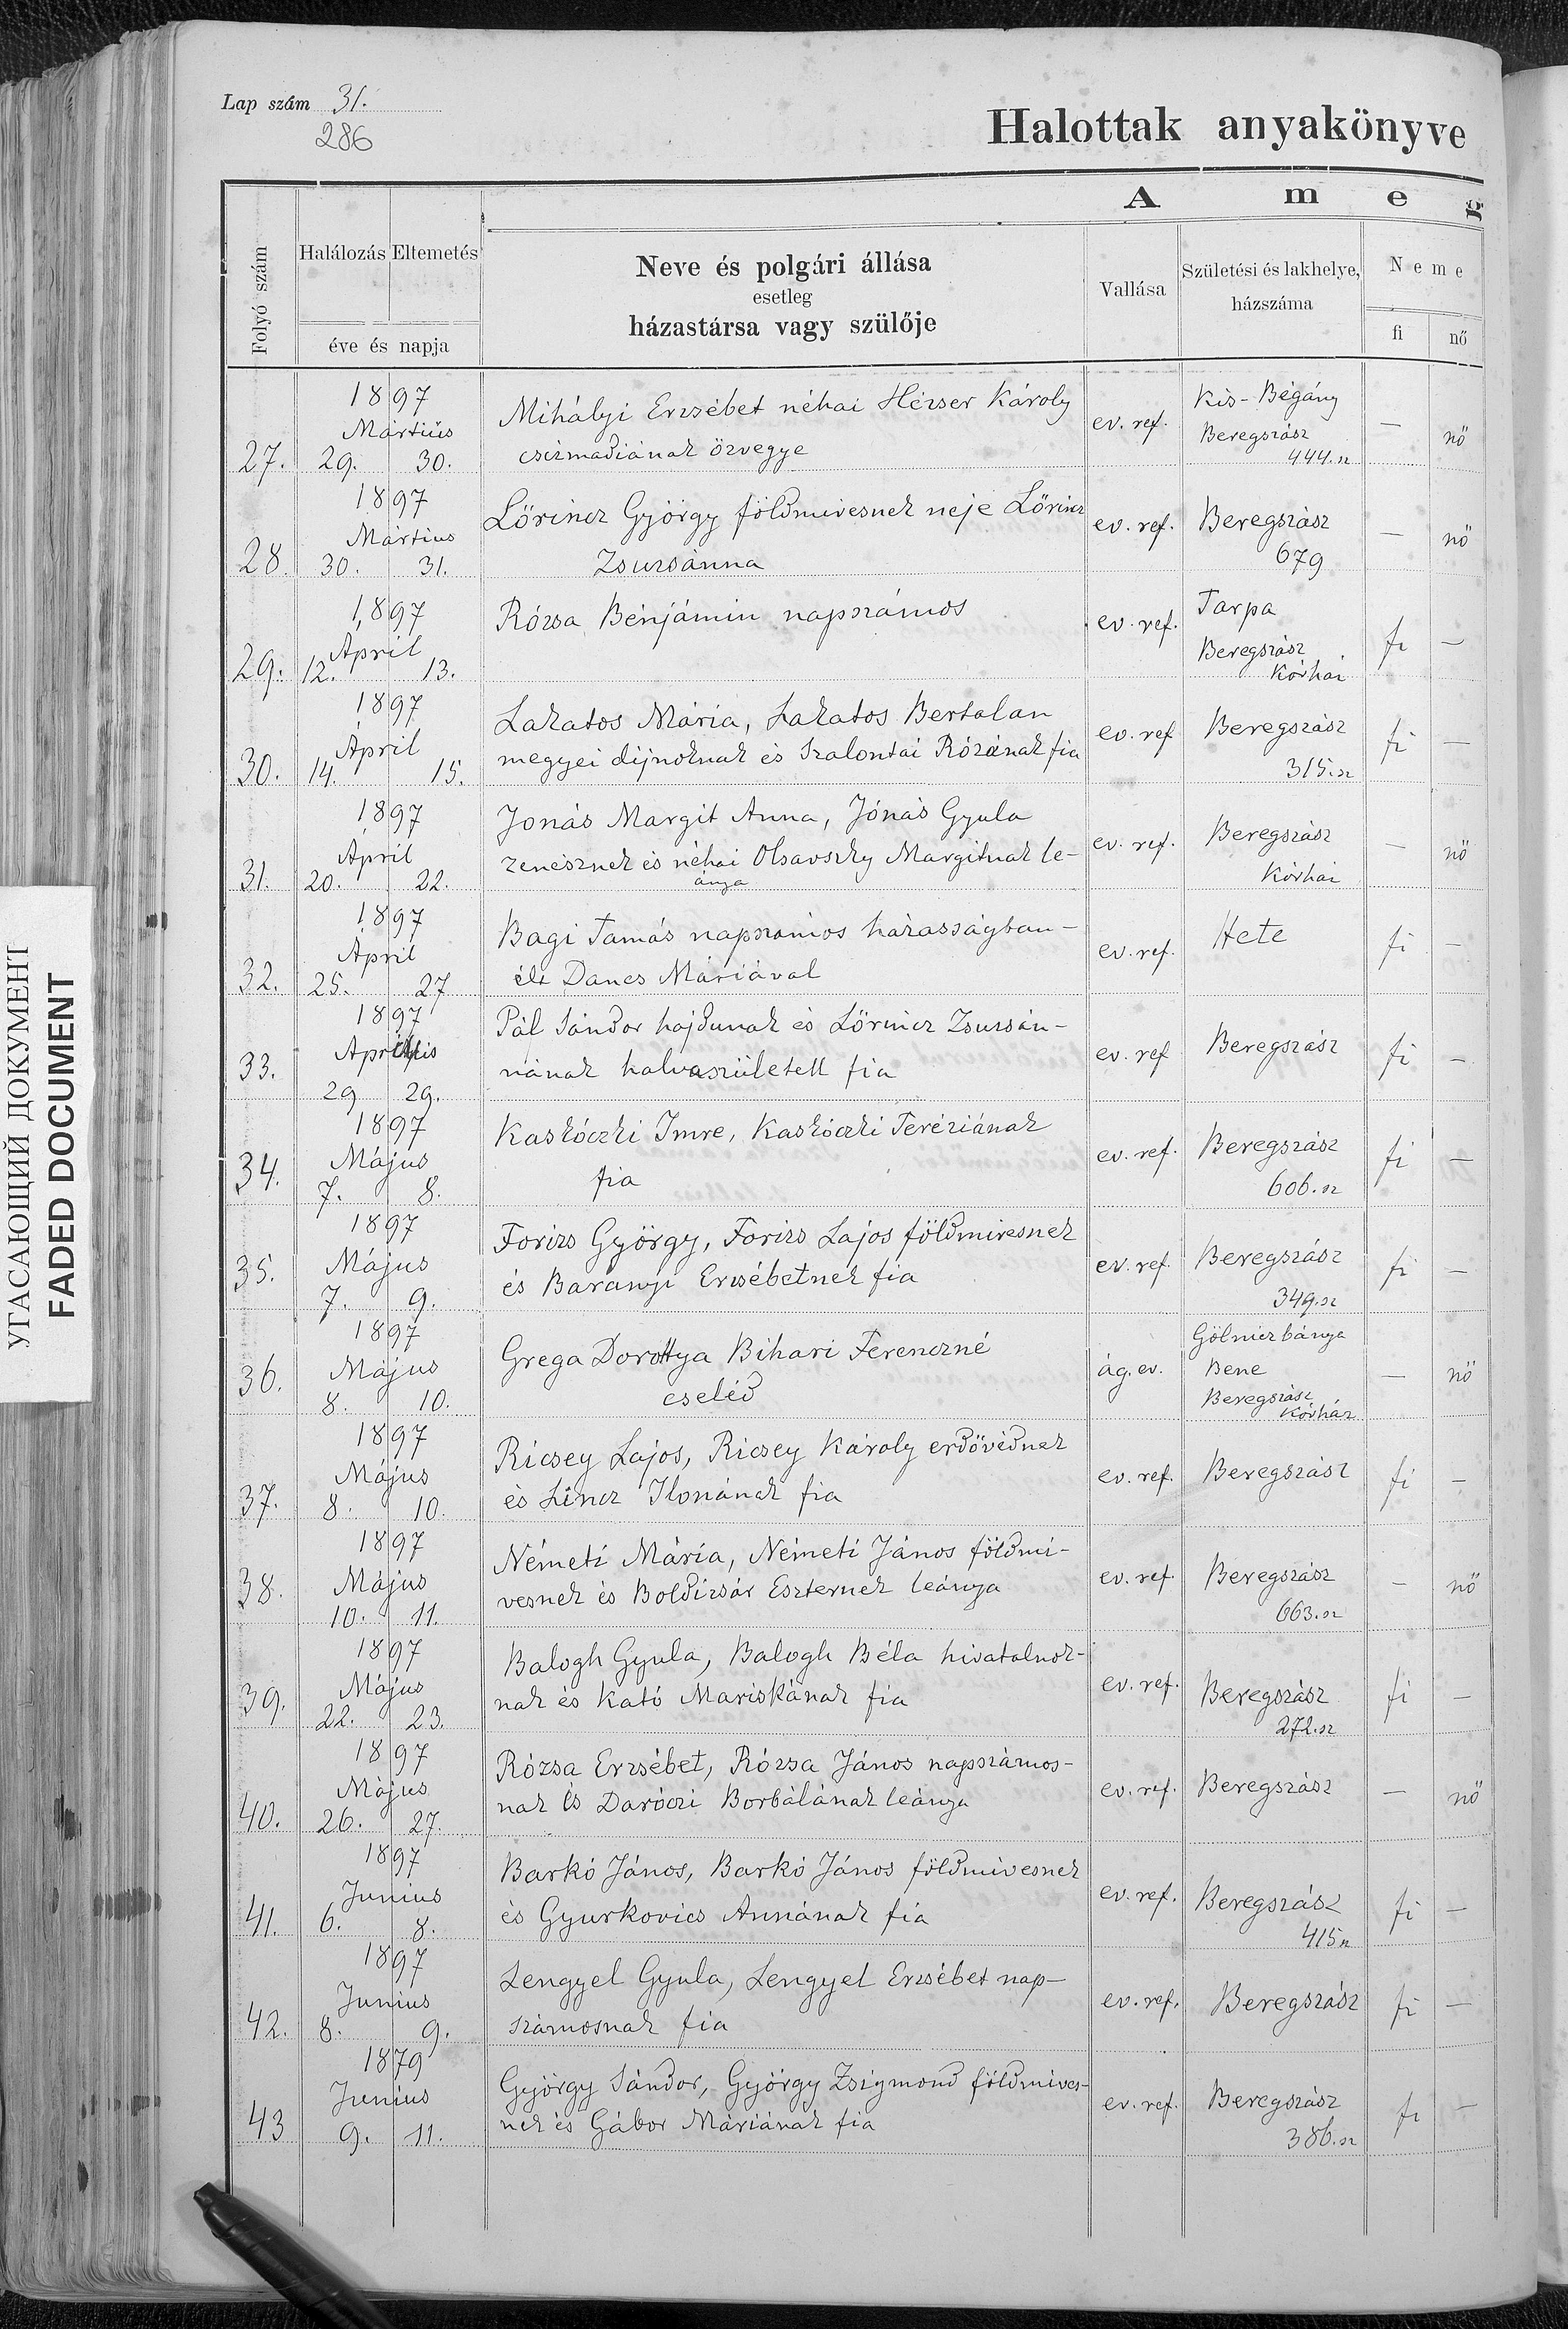 Lap szám 31.
286
Halottak anyakönyve
A m e g
Folyó szám
Halálozás Eltemetés
éve és napja
Neve és polgári állása
esetleg
házastársa vagy szülője
Vallása
Születési és lakhelye,
házszáma
Neme
fi nő
1897
Mártiús
27. 29. 30.
Mihályi Erzsébet néhai Hézser Károly
csizmadiának özvegye
ev. ref.
Kis-Bégány
Beregszász
444. sz
— nő
1897
Mártius
28. 30. 31.
Lőrincz György földmivesnek neje Lőrincz
Zsuzsánna
ev. ref.
Beregszász
679
— nő
1897
Ápril
29. 12. 13.
Rózsa Bénjámin napszámos
ev. ref.
Tarpa
Beregszász
Kórház
fi —
1897
Ápril
30. 14. 15.
Lakatos Mária, Lakatos Bertalan
megyei dijnoknak és Szalontai Rózának fia
ev. ref
Beregszász
315. sz
fi —
1897
Ápril
31. 20. 22.
Jonás Margit Anna, Jónás Gyula
zenésznek és néhai Olsavszky Margitnak le-
ánya
ev. ref.
Beregszász
Kórház
— nő
1897
Ápril
32. 25. 27
Bagi Tamás napszamos házasságban-
élt Dancs Máriával
ev. ref.
Hete
fi —
1897
Április
33. 29 29.
Pál Sándor hajdunak és Lőrincz Zsuzsán-
nának halvaszületett fia
ev. ref
Beregszász
fi —
1897
Május
34. 7. 8.
Kaskóczki Imre, Kaskóczki Teréziának
fia
ev. ref.
Beregszász
606. sz
fi —
1897
Május
35. 7. 9.
Forizs György, Forizs Lajos földmivesnek
és Baranyi Erzsébetnek fia
ev. ref.
Beregszász
349. sz
fi —
1897
Május
36. 8. 10.
Grega Dorottya Bihari Ferenczné
cseléd
ág. ev.
Gölniczbánya
Bene
Beregszász
Kórház
— nő
1897
Május
37. 8. 10.
Ricsey Lajos, Ricsey Károly erdővédnek
és Lincz Ilonának fia
ev. ref.
Beregszász
fi —
1897
Május
38. 10. 11.
Németi Mária, Németi János földmi-
vesnek és Boldizsár Eszternek leánya
ev. ref
Beregszász
663. sz
— nő
1897
Május
39. 22. 23.
Balogh Gyula, Balogh Béla hivatalnok-
nak és Kató Mariskának fia
ev. ref.
Beregszász
272. sz
fi —
1897
Május
40. 26. 27.
Rózsa Erzsébet, Rózsa János napszámos-
nak és Daróczi Borbálának leánya
ev. ref.
Beregszász
— nő
1897
Junius
41. 6. 8.
Barkó János, Barkó János földmivesnek
és Gyurkovics Annának fia
ev. ref.
Beregszász
415 sz
fi —
1897
Junius
42. 8. 9.
Lengyel Gyula, Lengyel Erzsébet nap-
számosnak fia
ev. ref.
Beregszász
fi —
1879
Junius
43 9. 11.
György Sándor, György Zsigmond földmives-
nek és Gábor Máriának fia
ev. ref.
Beregszász
386. sz
fi —
УГАСАЮЩИЙ ДОКУМЕНТ
FADED DOCUMENT